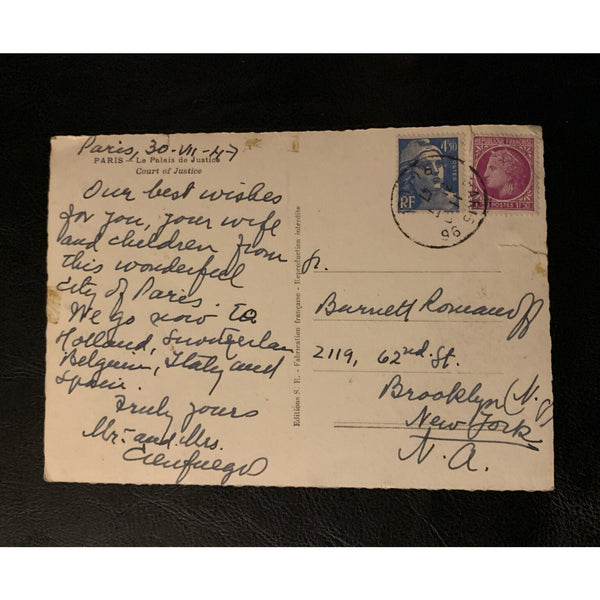 Paris, 30-VII-47
PARIS - Le Palais de Justice
Court of Justice
Our best wishes
for you, your wife
and children from
this wonderful
city of Paris.
We go now to
Holland, Switzerlan
Belgium, Italy and
Spain.
Truly yours
Mr. and Mrs.
Cienfuegos
Editions S. R. - Fabrication française - Reproduction interdite
4F50
POSTES
RF
REPUBLIQUE FRANÇAISE
POSTES 1F50
PARIS
96
Sr.
Barnett Romanoff
2119, 62nd. St.
Brooklyn (N.Y
New York
N.A.